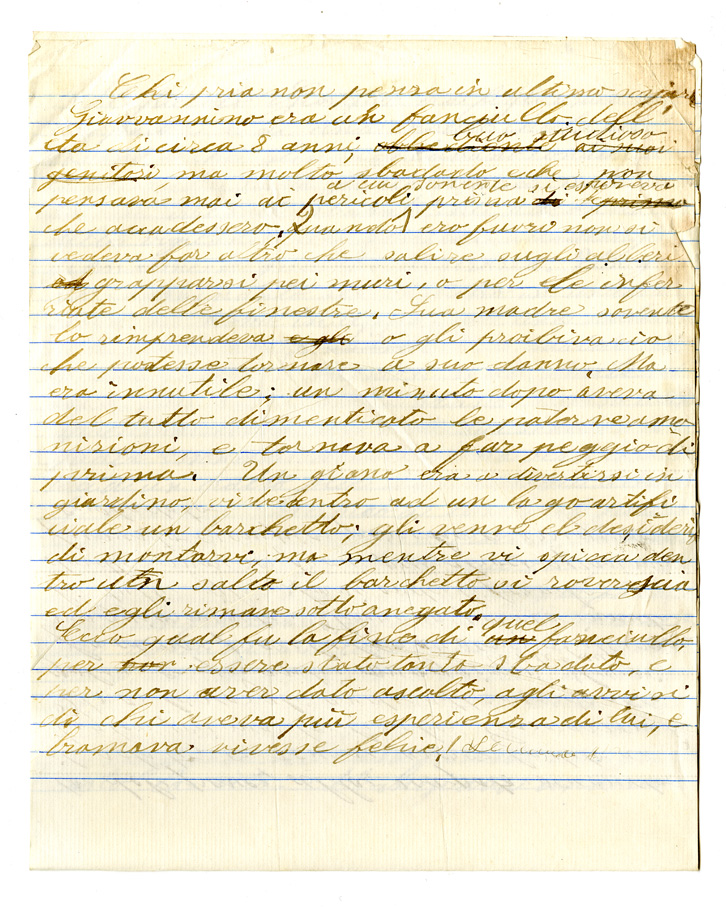 Chi pria non pensa in ultimo sospira
Giovvannino era un fanciullo dell'
eta di circa 8 anni, obbediente ai suoi buo studioso
genitori, ma molto sbadado che non
pensava mai ai pericoli prima di a cui sovente si esponeva prima
che accadessero. Quando ero fuori non si
vedeva far altro che salire sugli alberi
ad grapparsi pei muri, o per le infer
riate delle finestre. Sua madre sovente
lo rimprendeva e gli o gli proibiva ciò
che potesse tornare a suo danno. Ma
era innutile; un minuto dopo aveva
del tutto dimenticato le materne amo
nizioni, e tornava a far peggio di
prima. Un giono era a divertirsi in
giardino, vide entro ad un lago artifi
ciale un barchetto; gli venne il desiderio
di montarvi, ma mentre vi spicca den
tro un salto il barchetto si rovescia
ed egli rimane sotto anegato.
Ecco qual fu la fine di un quel fanciullo,
per non essere stato tanto sbadato, e
per non aver dato ascolto, agli avvisi
di chi aveva più esperienza di lui, e
bramava vivesse felice!